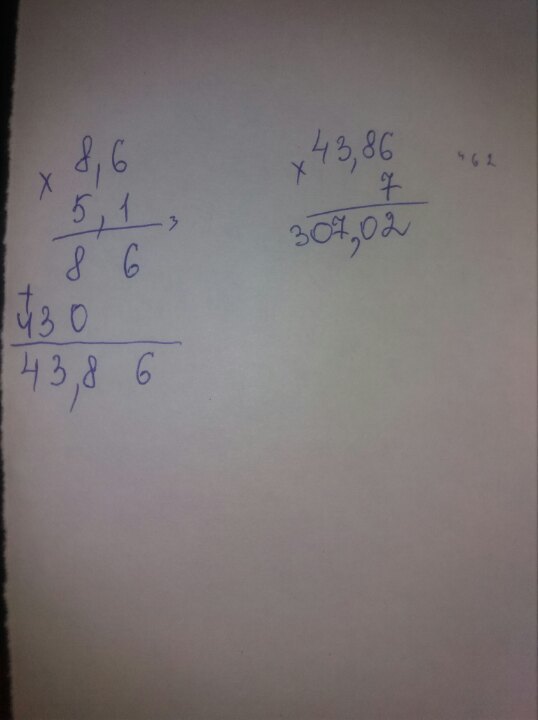 8,6
× 5,1
3
8 6
+
43 0
43,8 6
43,86
× 7
307,02
462